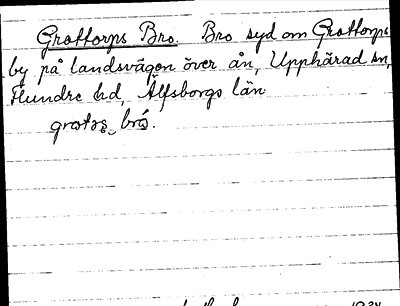 Grottorps Bro. Bro syd om Grottorps
by på landsvägen över ån, Upphärad sn,
Flundre hd, Älfsborgs län
1934